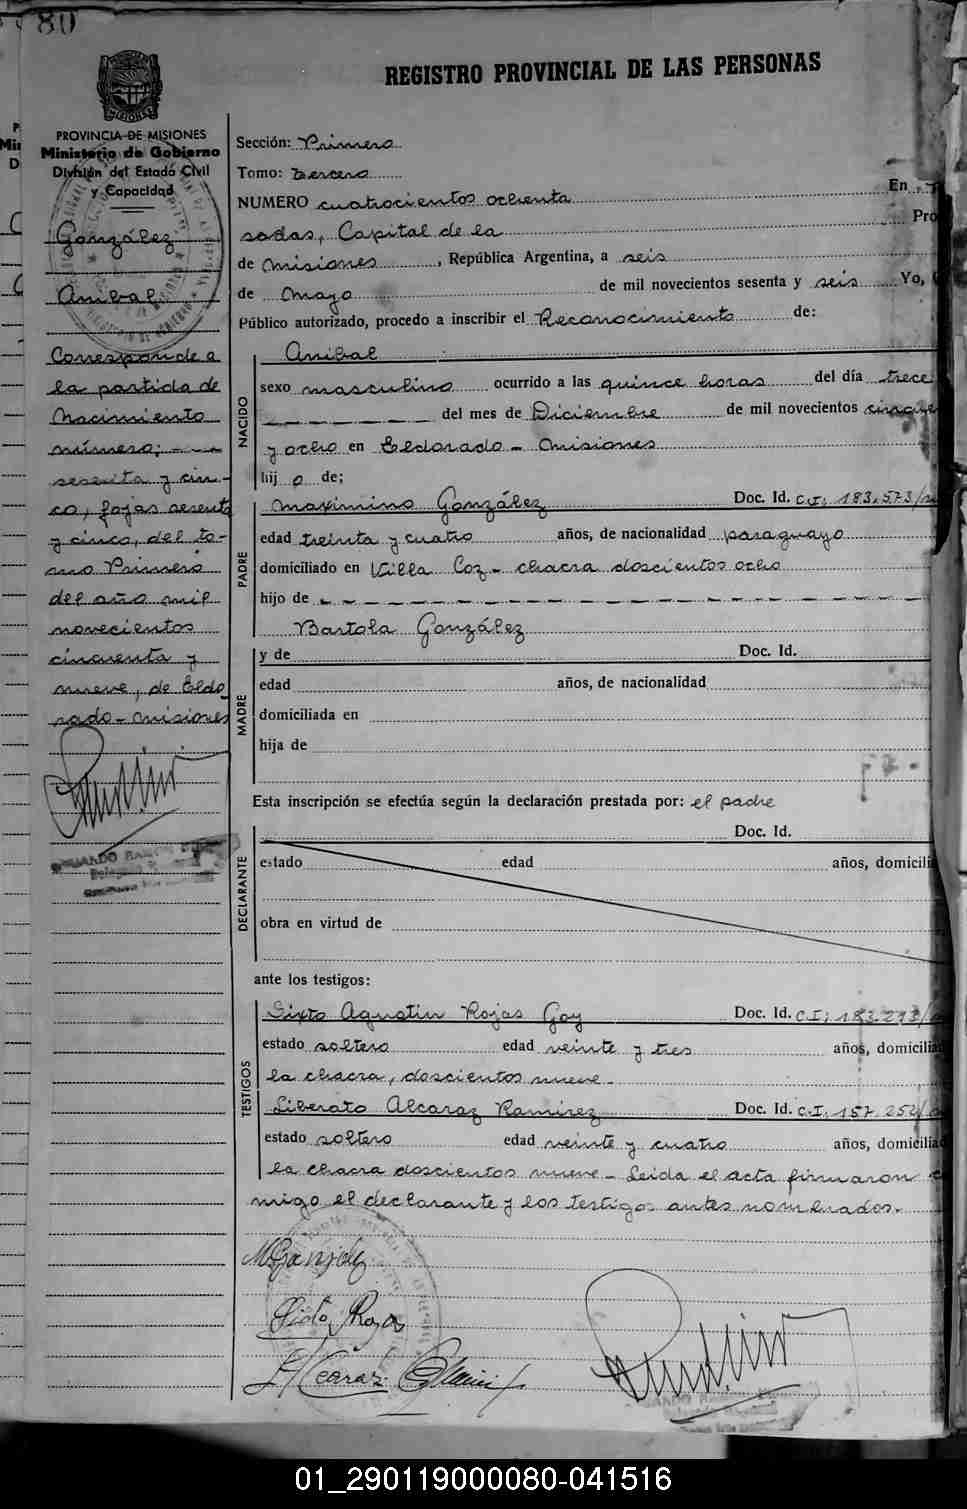 80
REGISTRO PROVINCIAL DE LAS PERSONAS
PROVINCIA DE MISIONES
Ministerio de Gobierno
División del Estado Civil
y Capacidad
González
Anibal
Corresponde a
la partida de
Nacimiento
número; - - -
sesenta y cin-
co, fojas sesenta
y cinco, del to-
mo Primero
del año mil
novecientos
cincuenta y
nueve, de Eldo
rado - Misiones
Sección: Primera
Tomo: tercero
NUMERO cuatrocientos ochenta En
sadas, Capital de la Pro
de Misiones, República Argentina, a seis
de Mayo de mil novecientos sesenta y seis Yo,
Público autorizado, procedo a inscribir el Reconocimiento de:
NACIDO
Anibal
sexo masculino ocurrido a las quince horas del día trece
- - - - - - - del mes de Diciembre de mil novecientos
y ocho en Eldorado - Misiones
hij o de;
PADRE
Maximino González Doc. Id. C.I. 183.573
edad treinta y cuatro años, de nacionalidad paraguayo
domiciliado en Villa Coz - chacra doscientos ocho
hijo de - - - - - - - - - - - - - - - -
Bartola González
MADRE
y de Doc. Id.
edad años, de nacionalidad
domiciliada en
hija de
Esta inscripción se efectúa según la declaración prestada por: el padre
DECLARANTE
Doc. Id.
estado edad años, domicili
obra en virtud de
ante los testigos:
TESTIGOS
Sixto Agustin Rojas Goy Doc. Id. C.I; 183.293
estado soltero edad veinte y tres años, domicilia
la chacra, doscientos nueve -
Liberato Alcaraz Ramirez Doc. Id. C.I. 157.252
estado soltero edad veinte y cuatro años, domicilia
la chacra doscientos nueve - Leida el acta firmaron
migo el declarante y los testigos antes nombrados.-
M Gonzalez
Sixto Rojas
L Alcaraz
01_290119000080-041516